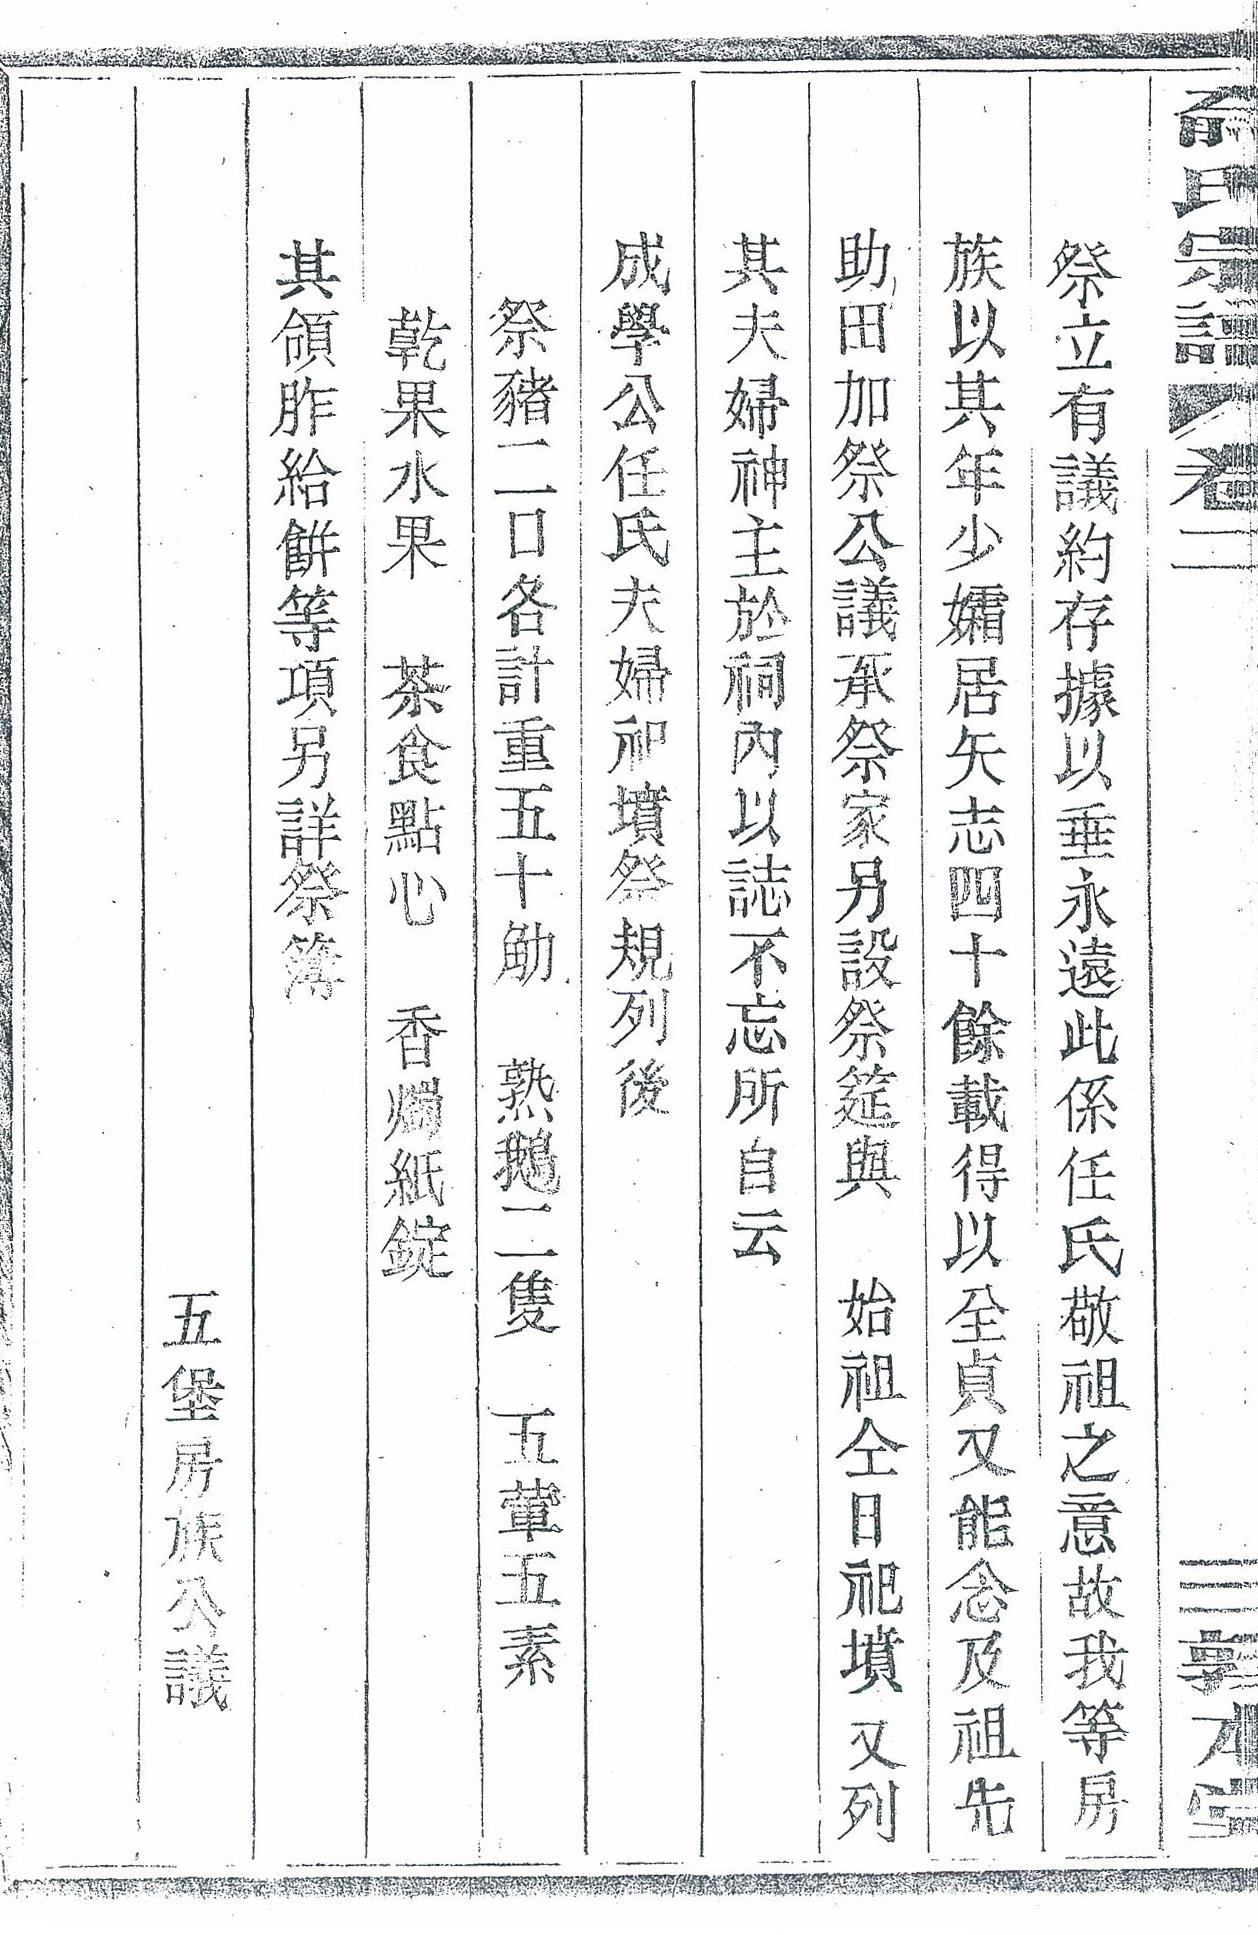 俞氏宗譜 卷二 三 敦本堂
祭立有議約存據以垂永遠此係任氏敬祖之意故我等房
族以其年少孀居矢志四十餘載得以全貞又能念及祖先
助田加祭公議承祭家另設祭筵與 始祖仝日祀墳又列
其夫婦神主於祠內以誌不忘所自云
成學公任氏夫婦祀墳祭規列後
祭豬二口各計重五十觔 熟鵝二隻 五葷五素
乾果水果 茶食點心 香燭紙錠
其領胙給餅等項另詳祭簿
五堡房族公議